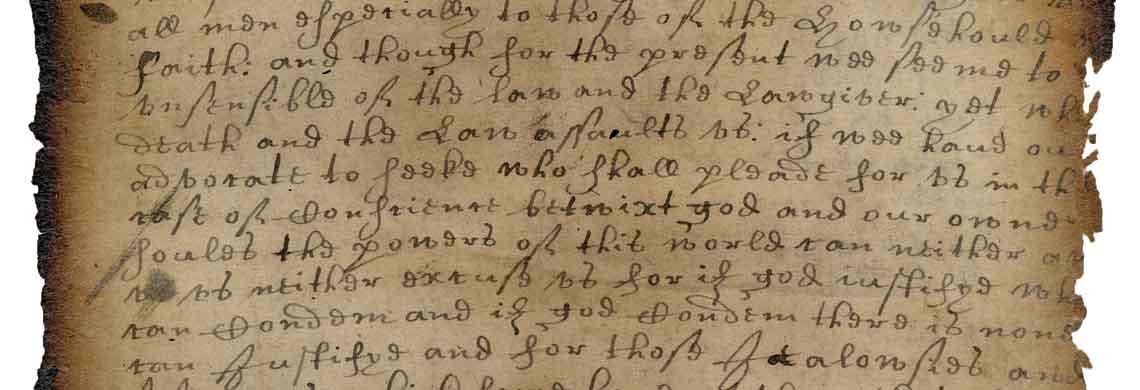 all men especially to those of the Howsehould
faith: and though for the present wee seeme to
vnsensible of the law and the Lawgiver: yet
death and the Law assaults vs: if wee haue
advocate to seeke who shall pleade for vs in
case of Conscience betwixt god and our owne
soules the powers of this world can neither
vs neither excuse vs for if god iustifye
can Condem and if god Condem there is none
can Justifye and for those Jealowsies and